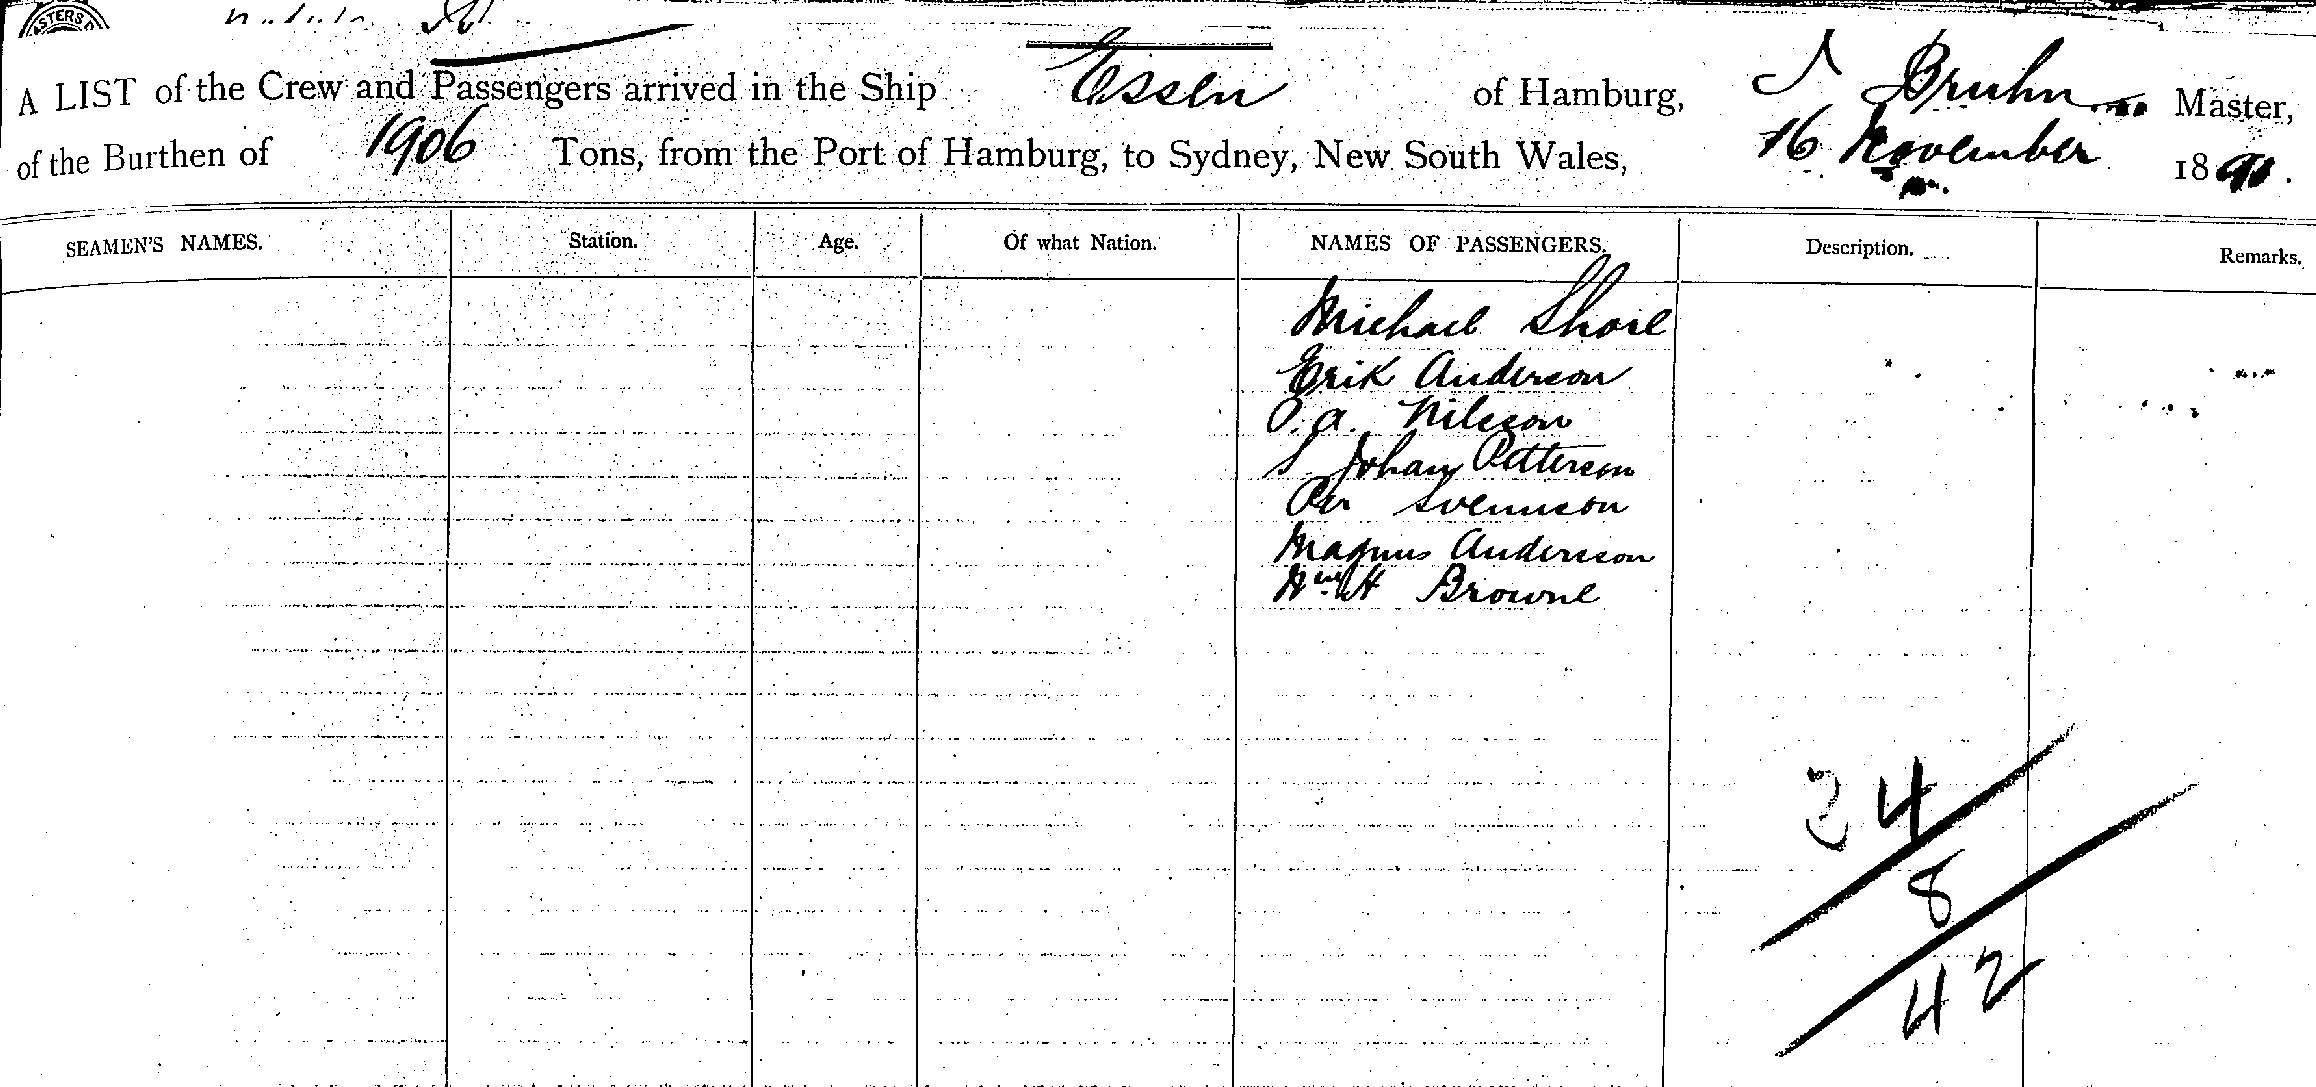 A LIST of the Crew and Passengers arrived in the Ship Essen of Hamburg, J Bruhn Master,
of the Burthen of 1906 Tons, from the Port of Hamburg, to Sydney, New South Wales, 16 November 1890.
SEAMEN'S NAMES. Station. Age. Of what Nation. NAMES OF PASSENGERS. Description. Remarks.
Michael
Erik Anderson
O. A. Nilsson
S Johan Petterson
Per Svennson
Magnus Andersson
Wm H Browne
34
8
42